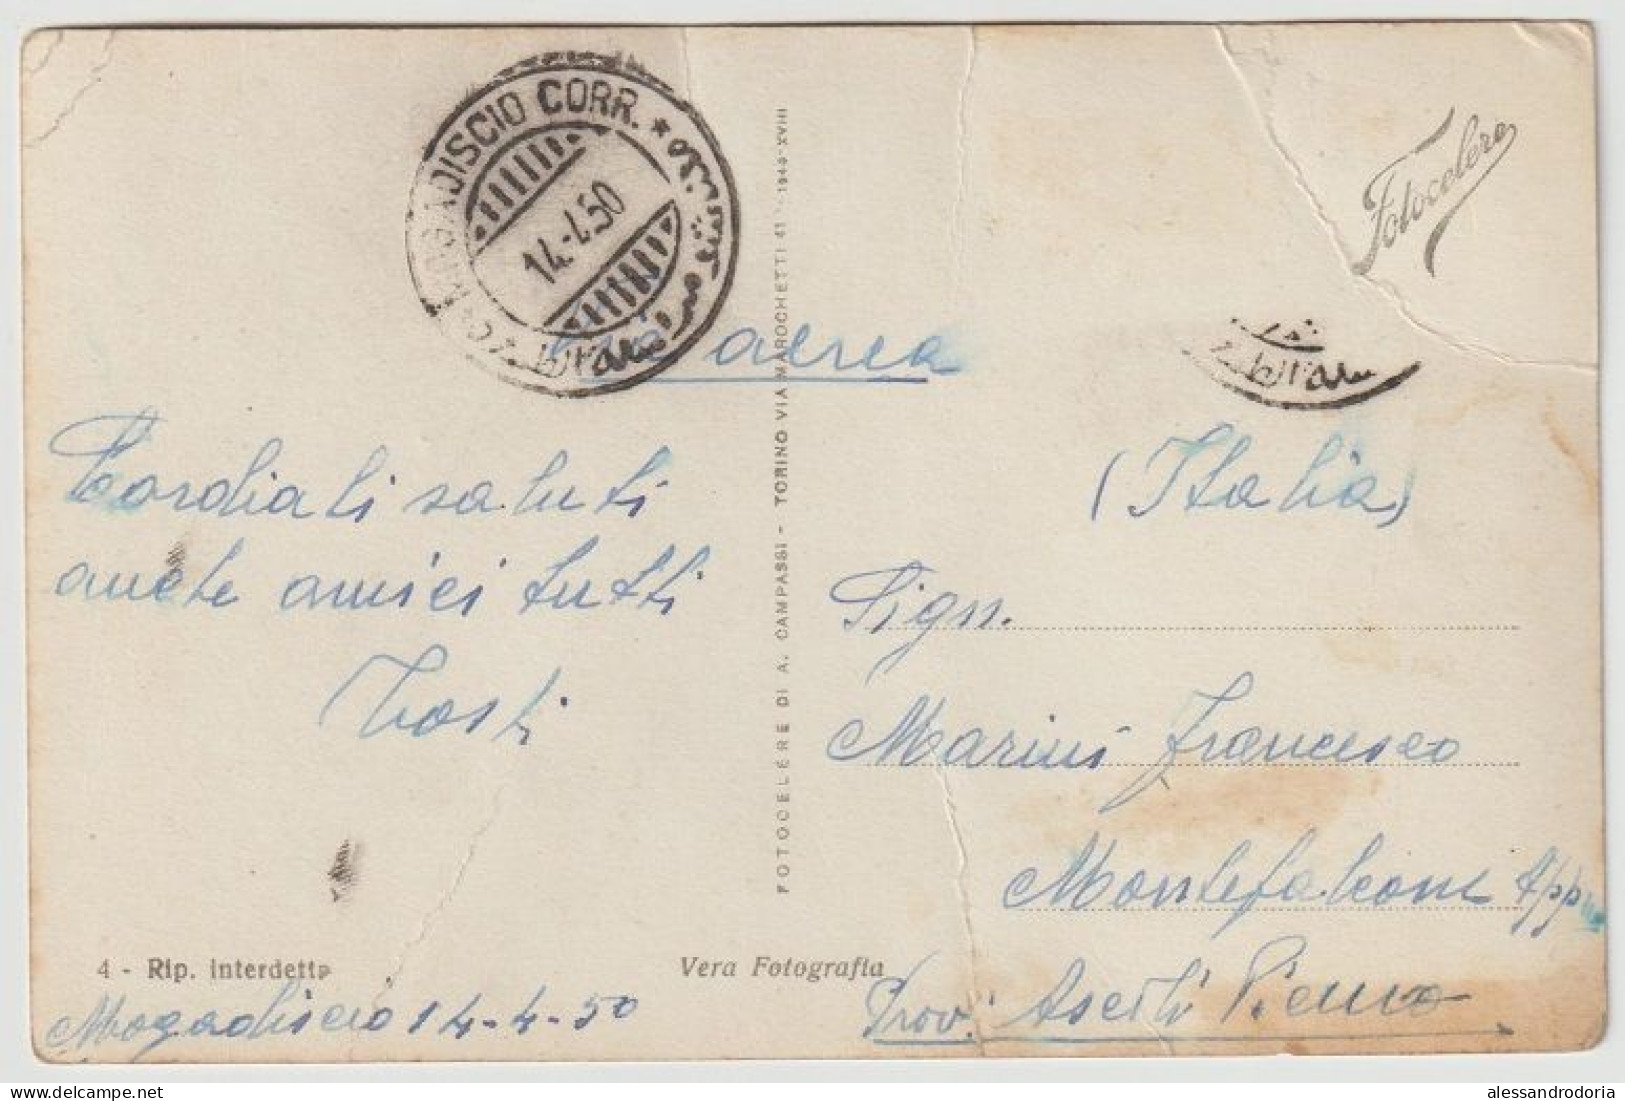 MOGADISCIO CORR.
14.-4.50
Fotocelere
Via aerea
Cordiali saluti
anche amici tutti
Tosti
4 - Rip. interdetta
Mogadiscio 14-4-50
Vera Fotografia
FOTOCELERE DI A. CAMPASSI - TORINO VIA MAROCHETTI 41 - 1940-XVIII
(Italia)
Sign.
Marini Francesco
Montefalcone App
Prov. Ascoli Piceno
alessandrodoria